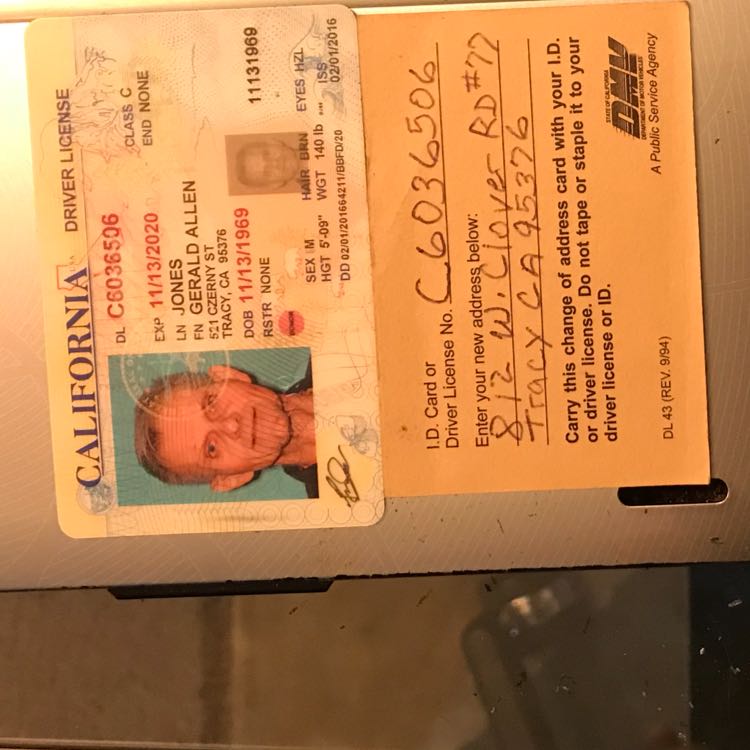 CALIFORNIA DRIVER LICENSE
DL C6036506
CLASS C
EXP 11/13/2020
END NONE
LN JONES
FN GERALD ALLEN
521 CZERNY ST
TRACY, CA 95376
DOB 11/13/1969
RSTR NONE
11131969
SEX M
HAIR BRN
EYES HZL
HGT 5'-09"
WGT 140 lb
ISS
DD 02/01/201664211/BBFD/20
02/01/2016
I.D. Card or
Driver License No. C6036506
Enter your new address below:
812 W. Clover RD #72
Tracy CA 95376
Carry this change of address card with your I.D.
or driver license. Do not tape or staple it to your
driver license or ID.
STATE OF CALIFORNIA
DMV
DEPARTMENT OF MOTOR VEHICLES
DL 43 (REV. 9/94)
A Public Service Agency